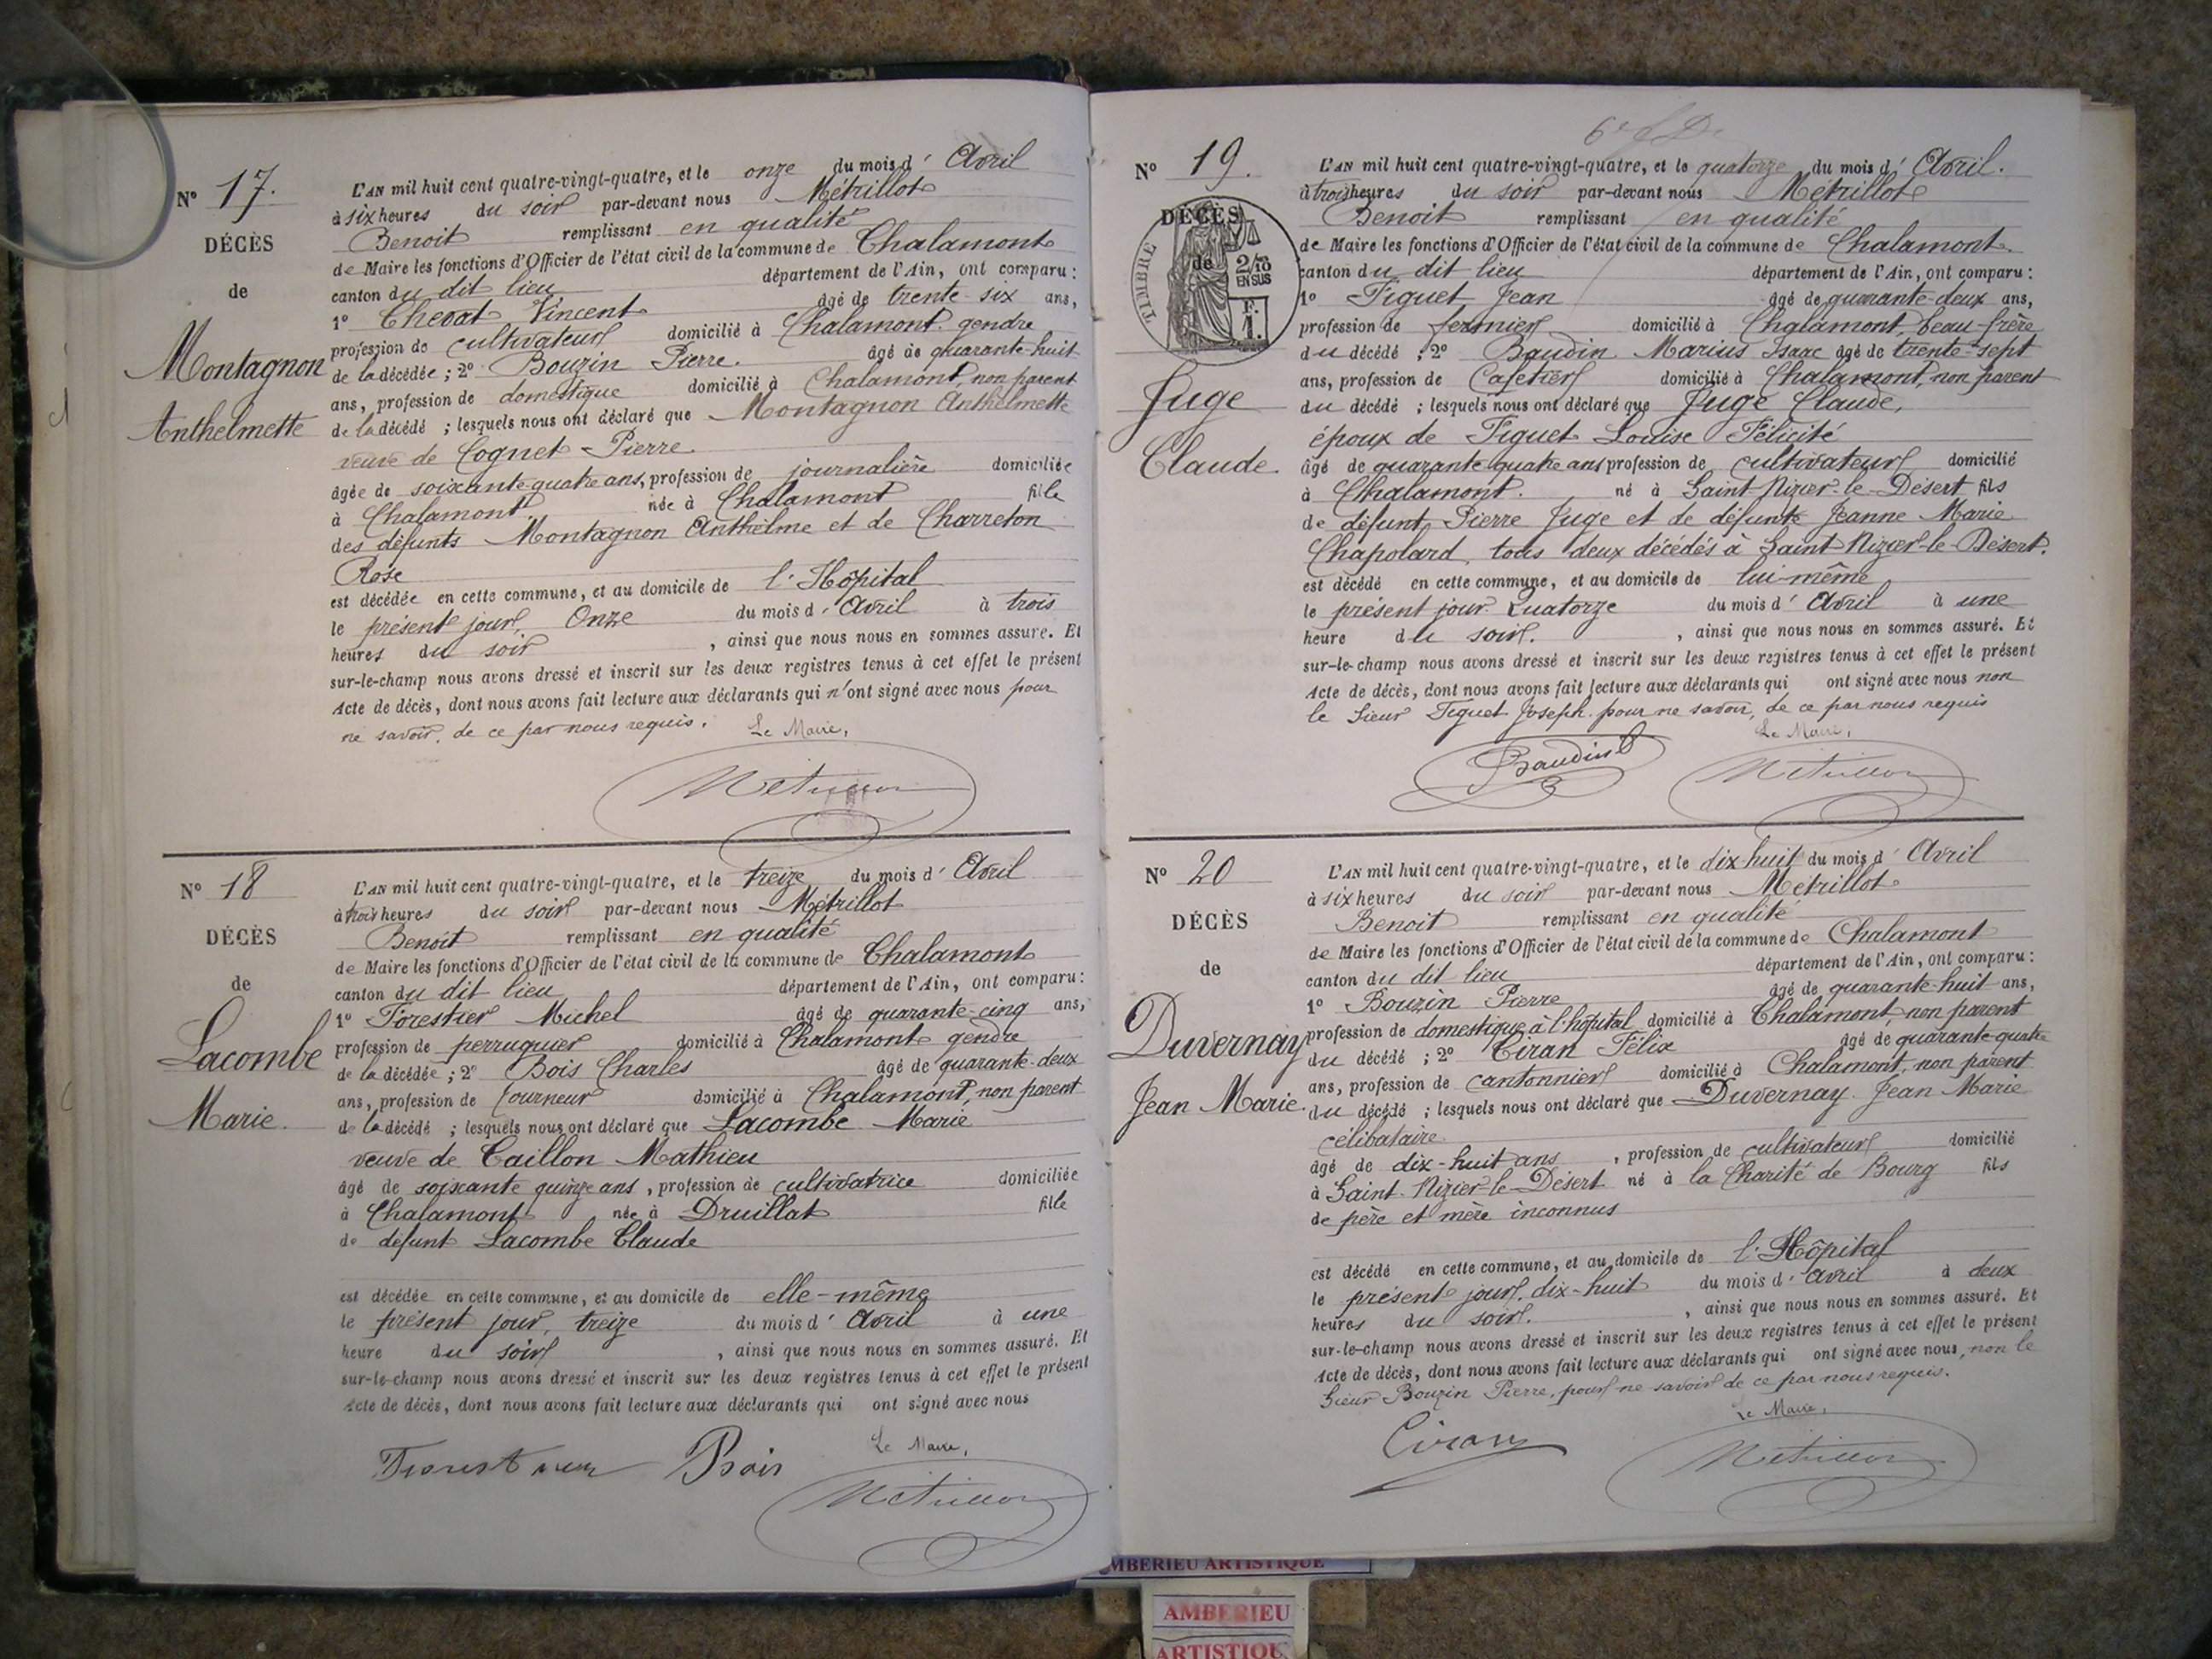 N° 17.
DÉCÈS
de
Montagnon
Anthelmette
L'AN mil huit cent quatre-vingt-quatre, et le onze du mois d' Avril
à six heures du soir par-devant nous Métrillot
Benoit remplissant en qualité
de Maire les fonctions d'Officier de l'état civil de la commune de Chalamont
canton du dit lieu département de l'Ain, ont comparu :
1° Chevat Vincent âgé de trente-six ans,
profession de cultivateur domicilié à Chalamont. gendre
de la décédée ; 2° Bouzin Pierre. âgé de quarante-huit
ans, profession de domestique domicilié à Chalamont, non parent
de la décédé ; lesquels nous ont déclaré que Montagnon Anthelmette
veuve de Cognet Pierre
âgée de soixante-quatre ans, profession de journalière domiciliée
à Chalamont. née à Chalamont fille
des défunts Montagnon Anthelme et de Charreton
Rose
est décédée en cette commune, et au domicile de l'Hôpital
le présent jour, Onze du mois d' Avril à trois
heures du soir , ainsi que nous nous en sommes assuré. Et
sur-le-champ nous avons dressé et inscrit sur les deux registres tenus à cet effet le présent
Acte de décès, dont nous avons fait lecture aux déclarants qui n'ont signé avec nous pour
ne savoir, de ce par nous requis. Le Maire,
Métrillot
N° 18
DÉCÈS
de
Lacombe
Marie.
L'AN mil huit cent quatre-vingt-quatre, et le treize du mois d' Avril
à trois heures du soir par-devant nous Métrillot
Benoit remplissant en qualité
de Maire les fonctions d'Officier de l'état civil de la commune de Chalamont
canton du dit lieu département de l'Ain, ont comparu :
1° Forestier Michel âgé de quarante-cinq ans,
profession de perruquier domicilié à Chalamont gendre
de la décédée ; 2° Bois Charles âgé de quarante-deux
ans, profession de tourneur domicilié à Chalamont, non parent
de la décédé ; lesquels nous ont déclaré que Lacombe Marie
veuve de Caillon Mathieu
âgé de soixante quinze ans , profession de cultivatrice domiciliée
à Chalamont née à Druillat fille
de défunt Lacombe Claude
est décédée en cette commune, et au domicile de elle-même
le présent jour, treize du mois d' Avril à une
heure du soir , ainsi que nous nous en sommes assuré. Et
sur-le-champ nous avons dressé et inscrit sur les deux registres tenus à cet effet le présent
Acte de décès, dont nous avons fait lecture aux déclarants qui ont signé avec nous
Le Maire,
Bois
Métrillot
N° 19.
DÉCÈS
de
TIMBRE
2/10
EN SUS
F.
1.
Juge
Claude.
L'AN mil huit cent quatre-vingt-quatre, et le quatorze du mois d' Avril.
à trois heures du soir par-devant nous Métrillot
Benoit remplissant en qualité
de Maire les fonctions d'Officier de l'état civil de la commune de Chalamont.
canton du dit lieu département de l'Ain, ont comparu :
1° Figuet Jean âgé de quarante-deux ans,
profession de fermier domicilié à Chalamont, beau-frère
du décédé ; 2° Baudin Marius Isaac âgé de trente-sept
ans, profession de Cafetier domicilié à Chalamont, non parent
du décédé ; lesquels nous ont déclaré que Juge Claude,
époux de Figuet Louise Félicité
âgé de quarante-quatre ans profession de cultivateur domicilié
à Chalamont. né à Saint Nizier-le-Désert fils
de défunt Pierre Juge et de défunte Jeanne Marie
Chapolard, tous deux décédés à Saint Nizier-le-Désert.
est décédé en cette commune, et au domicile de lui-même
le présent jour. Quatorze du mois d' Avril à une
heure du soir. , ainsi que nous nous en sommes assuré. Et
sur-le-champ nous avons dressé et inscrit sur les deux registres tenus à cet effet le présent
Acte de décès, dont nous avons fait lecture aux déclarants qui ont signé avec nous non
le Sieur Figuet Joseph. pour ne savoir, de ce par nous requis
Le Maire,
Baudin
Métrillot
N° 20
DÉCÈS
de
Duvernay
Jean Marie.
L'AN mil huit cent quatre-vingt-quatre, et le dix-huit du mois d' Avril
à six heures du soir par-devant nous Métrillot
Benoit remplissant en qualité
de Maire les fonctions d'Officier de l'état civil de la commune de Chalamont
canton du dit lieu département de l'Ain, ont comparu :
1° Bouzin Pierre âgé de quarante-huit ans,
profession de domestique à l'hôpital domicilié à Chalamont, non parent
du décédé ; 2° Ciran Félix âgé de quarante-quatre
ans, profession de cantonnier domicilié à Chalamont, non parent
du décédé ; lesquels nous ont déclaré que Duvernay Jean Marie
célibataire
âgé de dix-huit ans , profession de cultivateur domicilié
à Saint-Nizier-le-Désert né à la Charité de Bourg fils
de père et mère inconnus
est décédé en cette commune, et au domicile de l'Hôpital
le présent jour, dix-huit du mois d' Avril à deux
heures du soir. , ainsi que nous nous en sommes assuré. Et
sur-le-champ nous avons dressé et inscrit sur les deux registres tenus à cet effet le présent
Acte de décès, dont nous avons fait lecture aux déclarants qui ont signé avec nous, non le
Sieur Bouzin Pierre, pour ne savoir de ce par nous requis.
Le Maire,
Ciran
Métrillot
AMBERIEU ARTISTIQUE
AMBERIEU
ARTISTIQUE